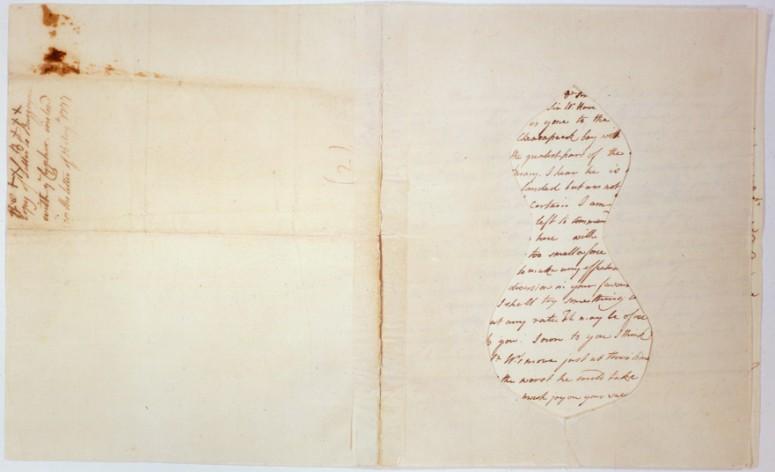 (2)
Sir W. Howe
is gone to the
Chesapeak bay with
the greatest part of the
army. I hear he is
landed but am not
certain. I am
left to command
here with
too small a force
to make any effectual
diversion in your favour
I shall try something
at any rate. It may be of use
to you. I own to you I think
Sr W's move just at this time
the worst he could take
much joy on your
copy of letter to Burgoyne
with
in the letter of